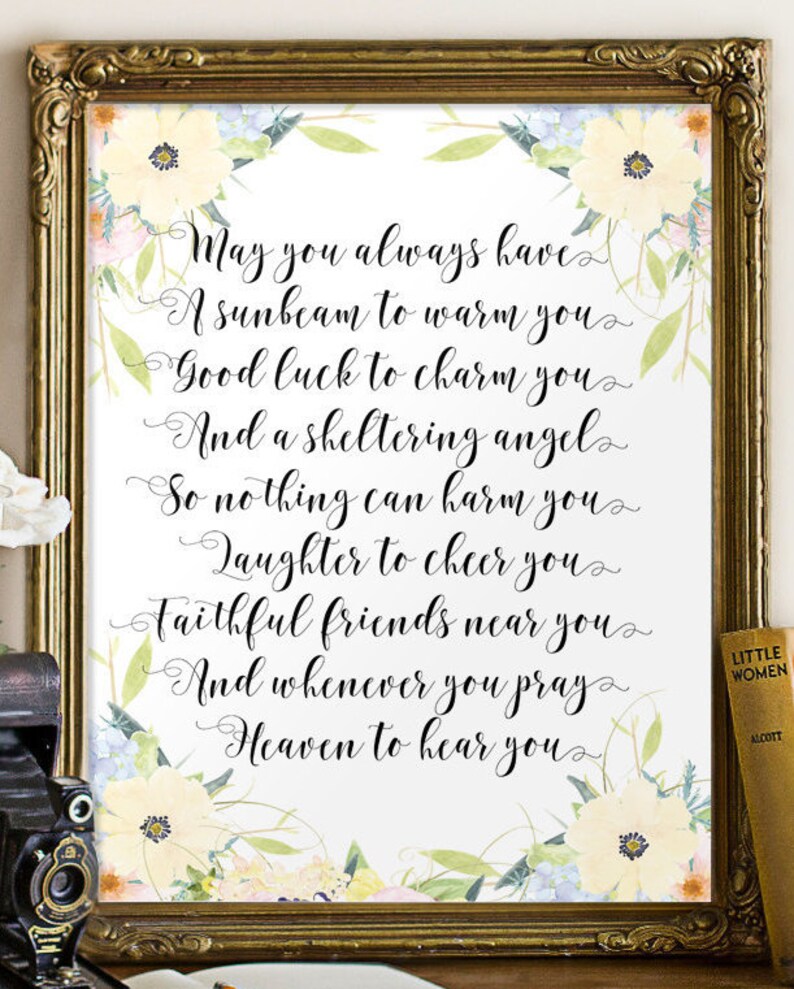 May you always have
A sunbeam to warm you
Good luck to charm you
And a sheltering angel
So nothing can harm you
Laughter to cheer you
Faithful friends near you
And whenever you pray
Heaven to hear you
LITTLE
WOMEN
ALCOTT